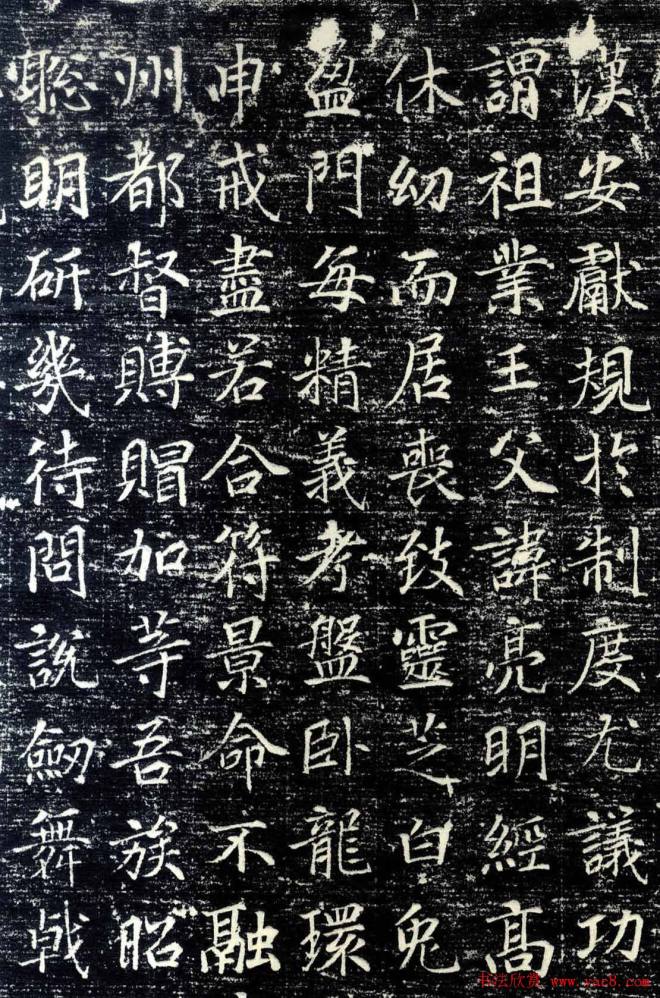 漢安獻規於制度尤議功
謂祖業王父諱亮明經高
休幼而居喪致靈芝白兔
盈門每精義考盤卧龍環
申戒盡若合符景命不融
州都督賻賵加等吾族昭
聡明研幾待問說劒舞戟
书法欣赏 www.yac8.com